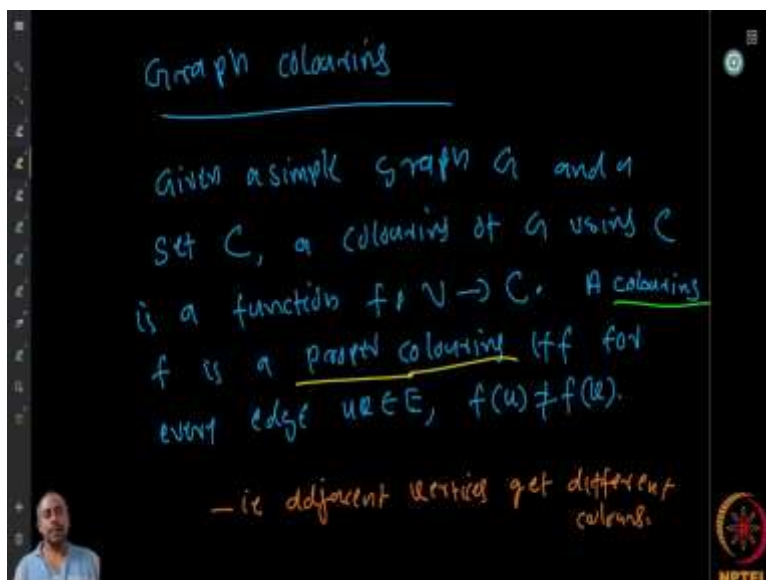 Graph colouring
Given a simple graph G and a
set C, a colouring of G using C
is a function f: V → C. A colouring
f is a proper colouring iff for
every edge uv ∈ E, f(u) ≠ f(v).
– ie adjacent vertices get different
colours.
NPTEL